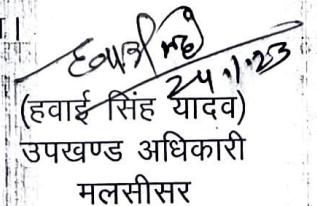 ।
24.1.23
(हवाई सिंह यादव)
उपखण्ड अधिकारी
मलसीसर